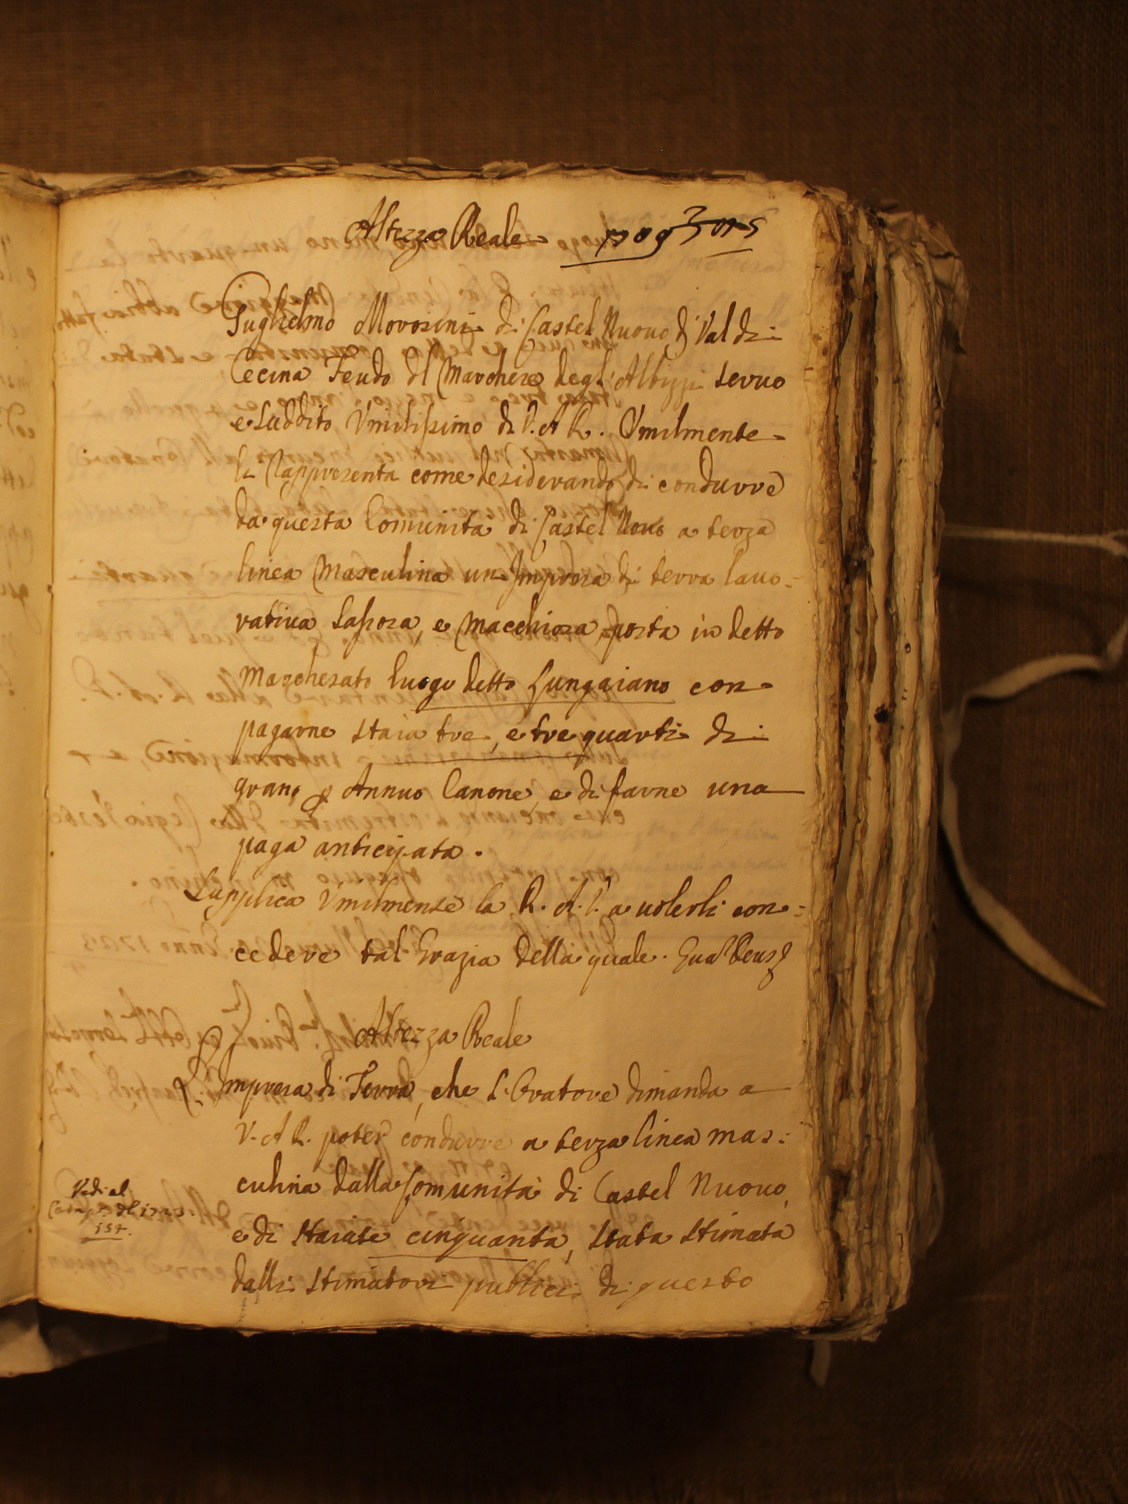 Altezza Reale
Guglielmo Morosini di Castel Nuovo di Val di
Cecina Feudo del Marchese degl'Albizzi servo
e Suddito Umilissimo di V. A R. Umilmente
li Rappresenta come desiderando di condurre
da questa Comunità di Castel Novo a terza
linea Masculina un Impresa di terra lavo=
rativa Sassosa, e Macchiosa posta in detto
Marchesato luogo detto Fungaiano con
pagarne staia tre, e tre quarti di
grano p Annuo Canone, e di farne una
paga anticipata.
Supplica Umilmente la R. A. V. a volerli con=
cedere tal Grazia della quale. Qua Deus
Altezza Reale
L'Impresa di Terra, che l'Oratore dimanda a
V. A R. poter condurre a terza linea mas:
culina dalla Comunità di Castel Nuovo,
e di staiate cinquanta, stata stimata
dalli stimatori publici di questo
Vedi al
157.